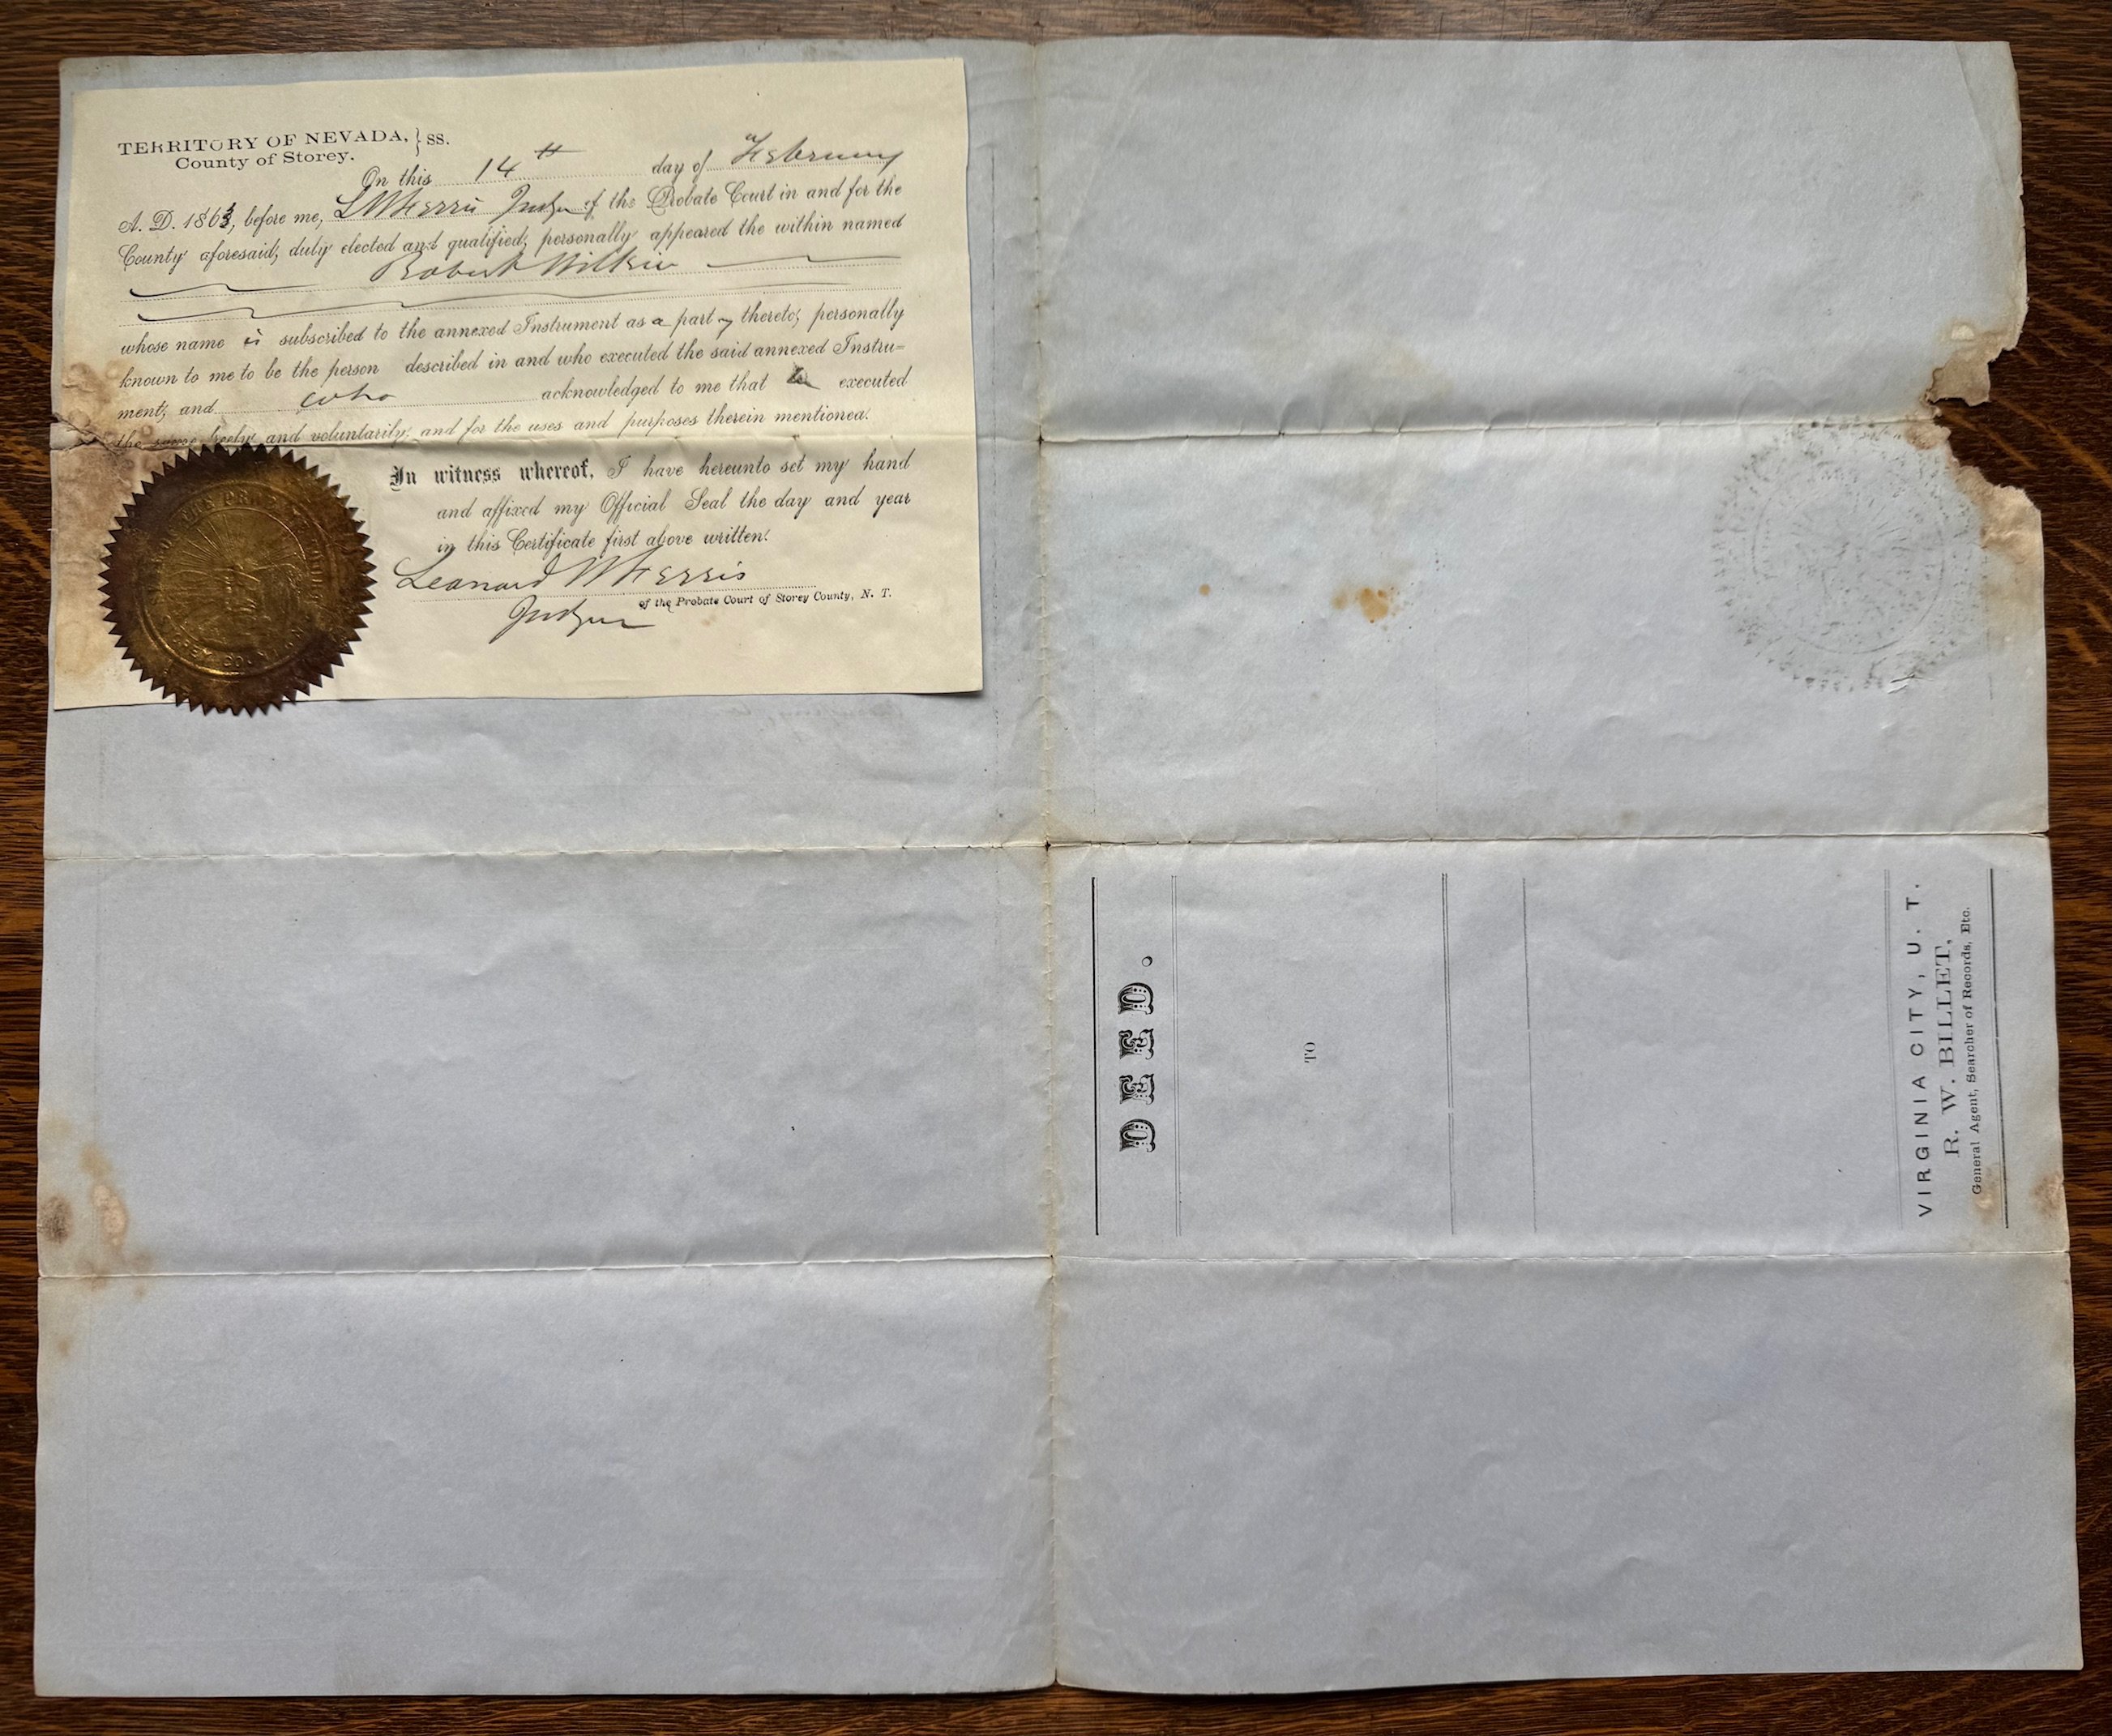 TERRITORY OF NEVADA, } SS.
County of Storey.
On this 14th day of February
A. D. 1863, before me, L W Ferris Judge of the Probate Court in and for the
County aforesaid, duly elected and qualified, personally appeared the within named
Robert Wilkin
whose name is subscribed to the annexed Instrument as a party thereto, personally
known to me to be the person described in and who executed the said annexed Instru=
ment, and who acknowledged to me that he executed
the same freely and voluntarily, and for the uses and purposes therein mentioned.
In witness whereof, I have hereunto set my hand
and affixed my Official Seal the day and year
in this Certificate first above written.
Leonard W Ferris
of the Probate Court of Storey County, N. T.
Judge
DEED.
TO
VIRGINIA CITY, U. T.
R. W. BILLET,
General Agent, Searcher of Records, Etc.